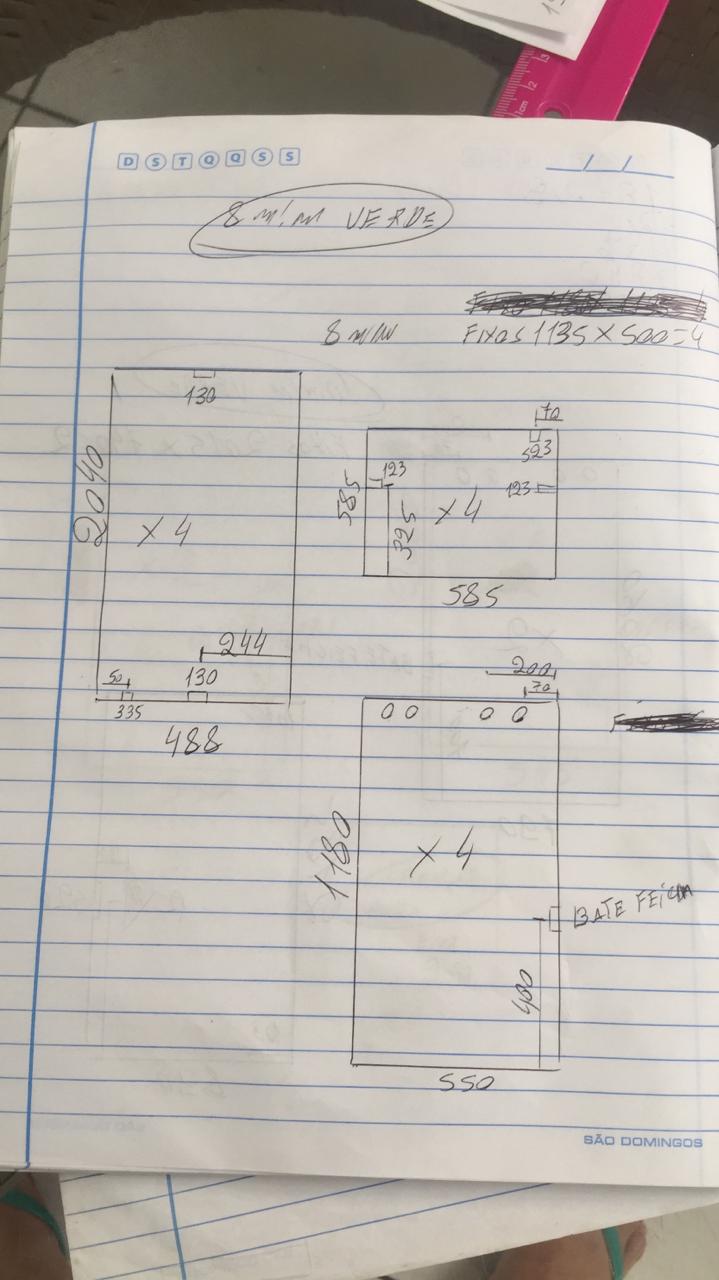 D S T Q Q S S
/ /
8 m/m VERDE
8 m/m
FIXOS 1135 X 500 = 4
130
2040
X 4
244
50
130
335
488
70
523
123
123
585
325
X 4
585
200
70
1180
X 4
BATE FEICHA
400
550
SÃO DOMINGOS